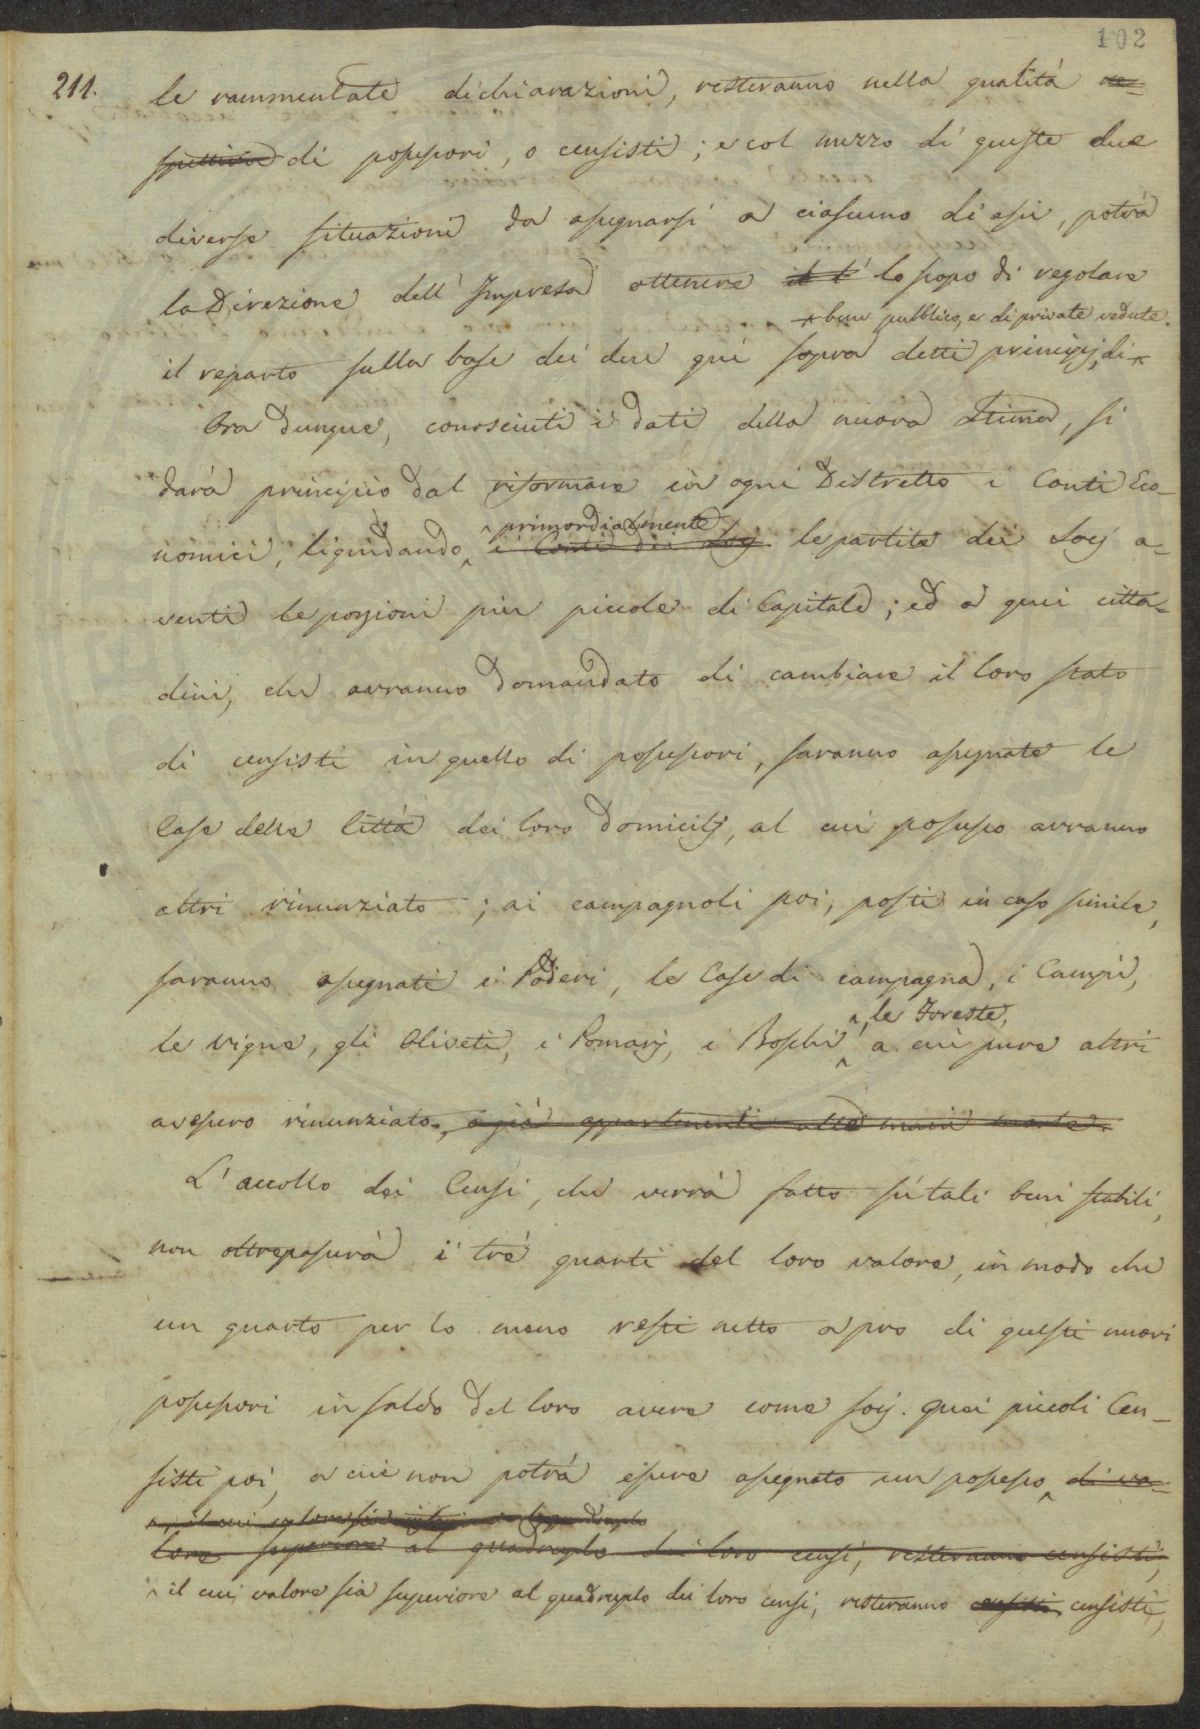 102
211.
le rammentate dichiarazioni, resteranno nella qualità re-
spettiva di possessori, o censisti; e col mezzo di queste due
diverse situazioni da assegnarsi a ciascuno di essi, potrà
la Direzione dell'Impresa ottenere il l' lo scopo di regolare
bene pubblico, e di private vedute.
il reparto sulla base dei due quì sopra detti principj, di
Ora dunque, conosciuti i dati della nuova Stima, si
darà principio dal riformare in ogni Distretto i Conti Eco-
primordialmente
nomici, liquidando i Conti dei Socj le partite dei Socj a-
venti le porzioni più piccole di Capitale; ed a quei citta-
dini, che avranno domandato di cambiare il loro stato
di censisti in quello di possessori, saranno assegnate le
Case delle Città dei loro domicilj, al cui possesso avranno
altri rinunziato; ai campagnoli poi, posti in caso simile,
saranno assegnati i Poderi, le Case di campagna, i Campi,
, le Foreste,
le vigne, gli Oliveti, i Pomarj, i Boschi a cui pure altri
avessero rinunziato, o già appartenenti alle mani morte.
L'accollo dei Censi, che verrà fatto su tali beni stabili,
non oltrepasserà i trè quarti del loro valore, in modo che
un quarto per lo meno resti netto a pro di questi nuovi
possessori in saldo del loro avere come socj. Quei piccoli Cen-
sisti poi, a cui non potrà essere assegnato un possesso di va-
il cui valore sia quadruplo
lore superiore al quadruplo dei loro censi, resteranno censisti,
il cui valore sia superiore al quadruplo dei loro censi, resteranno censisti censisti,